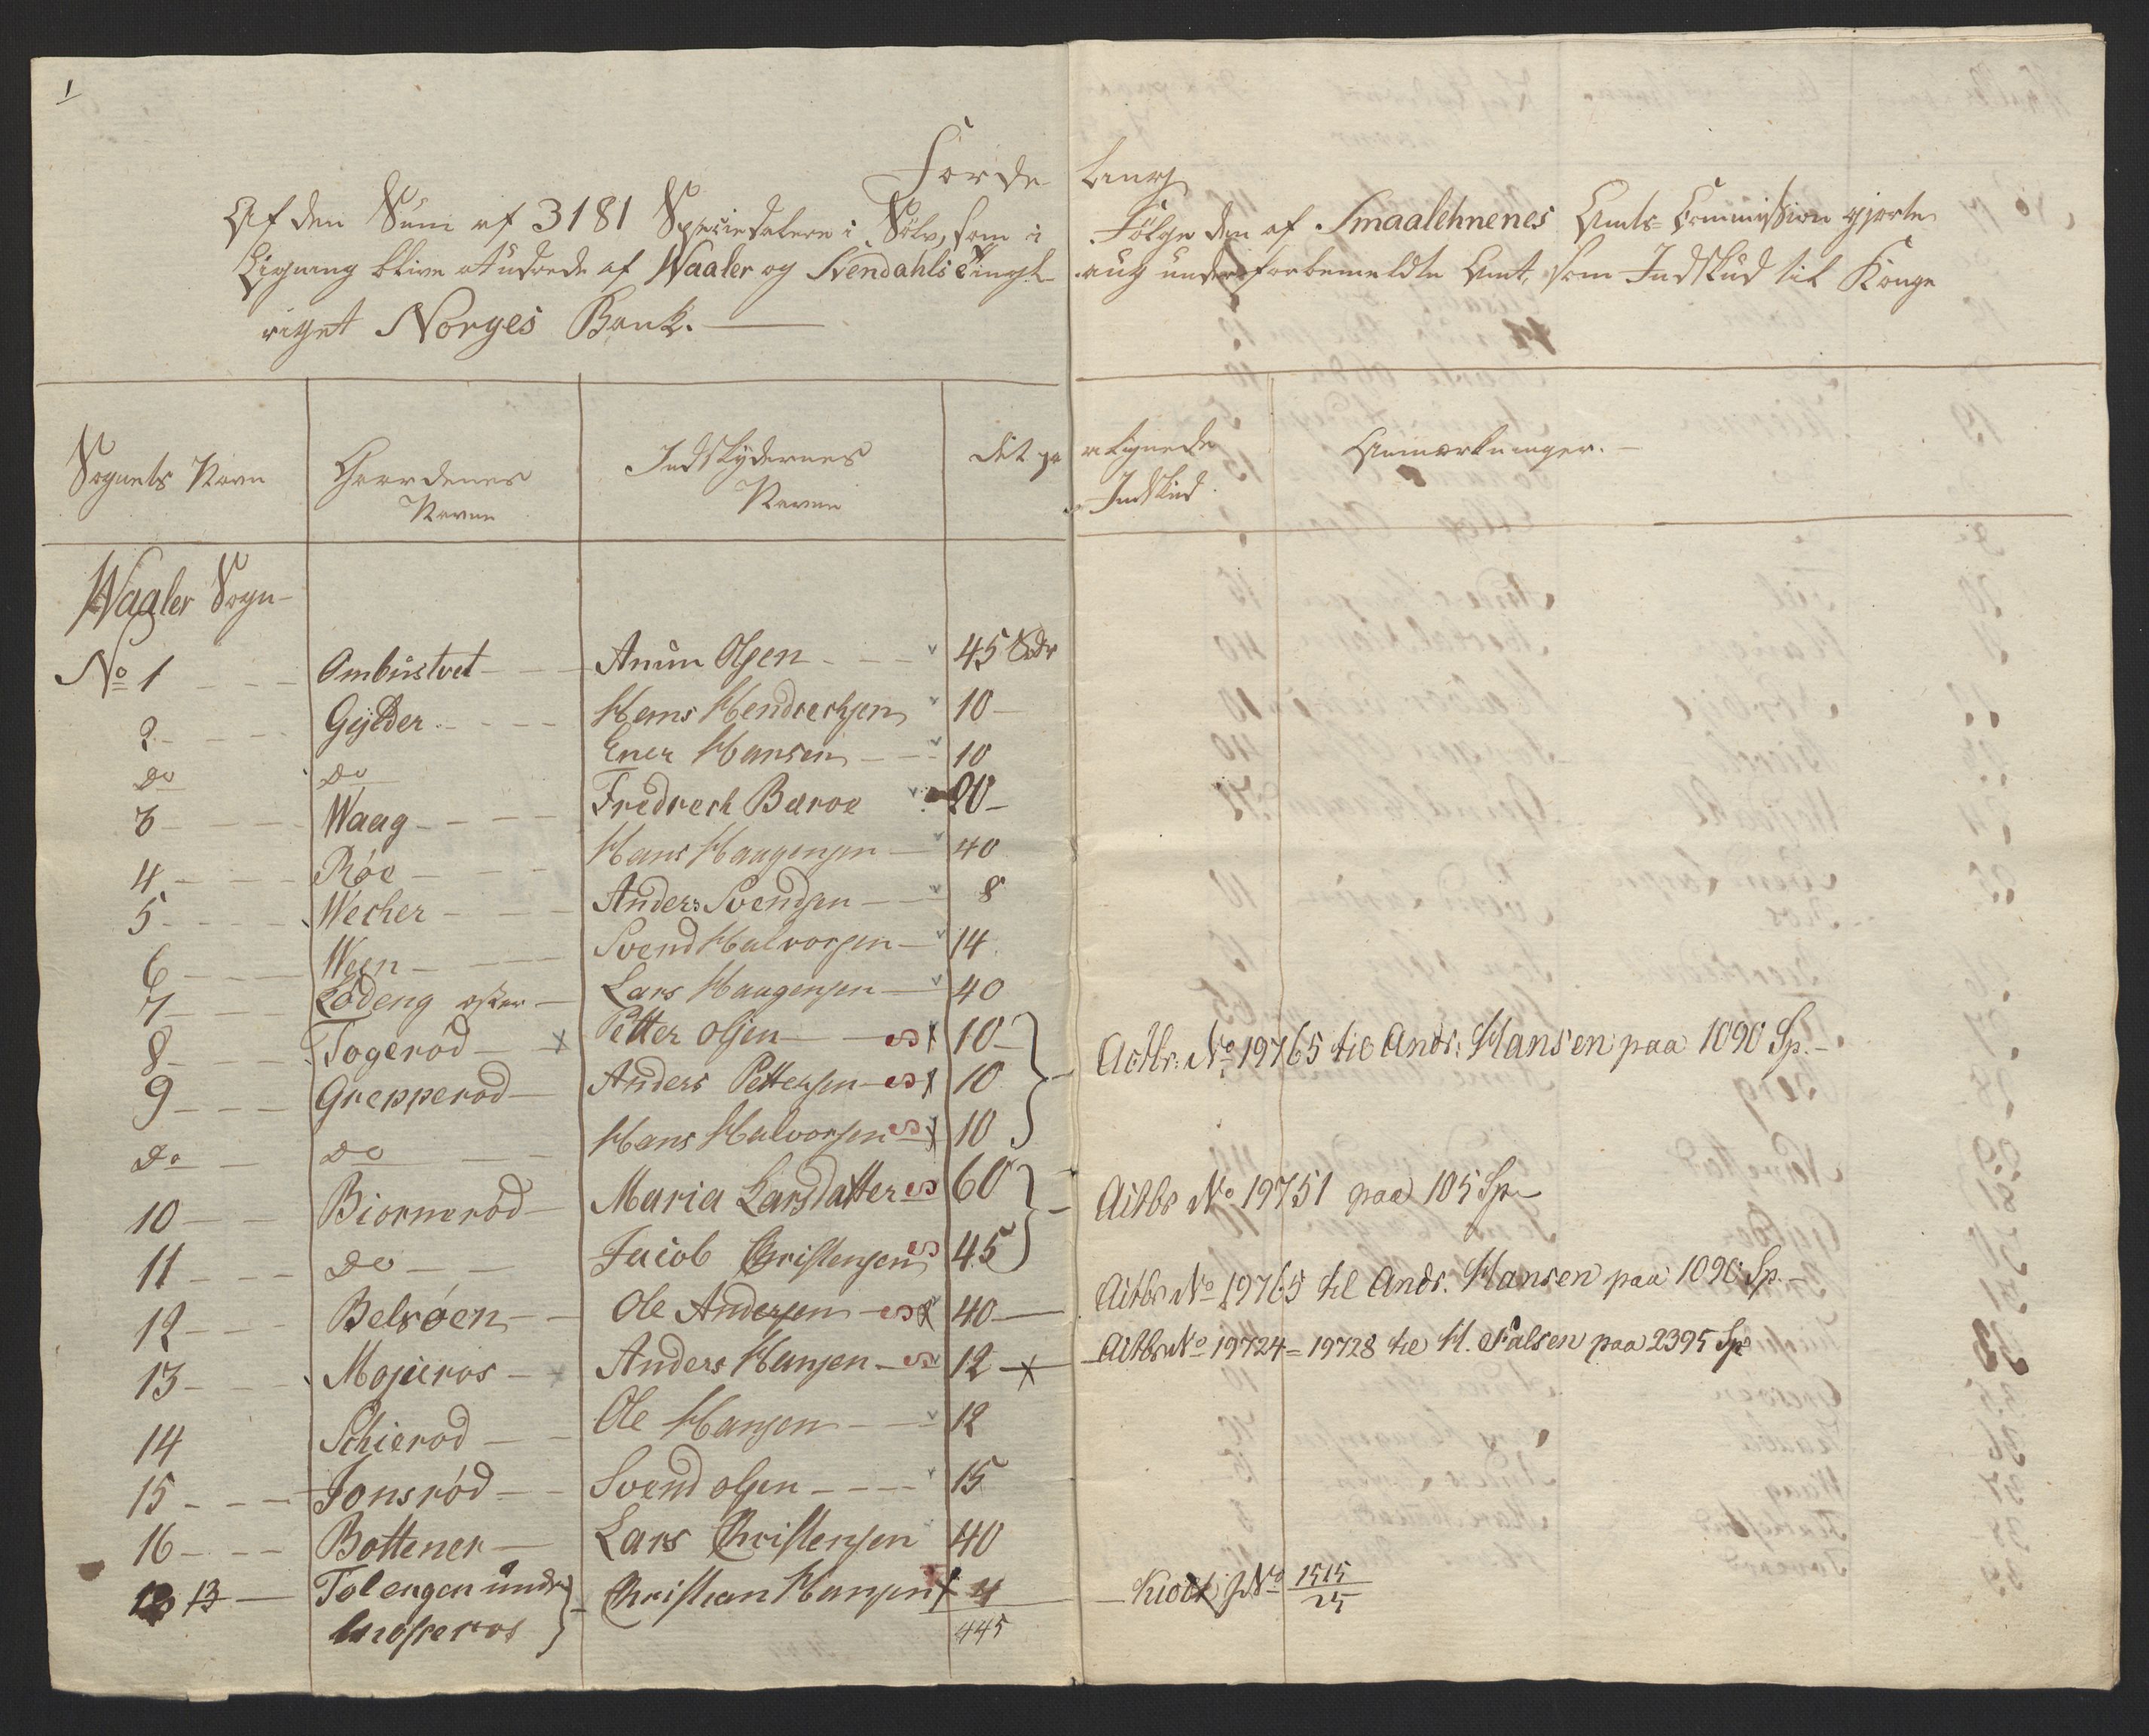 1
Fordeling
Af den Sum af 3181 Speciedalere i Sølv, som i Følge den af Smaalehnenes Amts-Commission gjorte
Ligning blive at udrede af Waaler og Svendahls Tinglaug under forbemeldte Amt, som Indskud til Konge
riget Norges Bank.
Sognets Navn Gaardenes Navne Indskydernes Navne Det paalignede Indskud Anmærkninger.
Waaler Sogn
No 1 Ombustvet Anun Olsen 45 Sdr
2 Gylder Hans Hendrechsen 10
do do Ener Hansen 10
3 Waag Fredrech Bæroe 20
4 Røe Hans Haagensen 40
5 Wecher Anders Svendsen 8
6 Ween Svend Halvorsen 14
7 Lødeng østre Lars Haagensen 40
8 Togerød Petter Olsen 10
9 Grepperød Anders Pettersen 10 Actbr: No 19765 til Ands: Hansen paa 1090 Sp.
do do Hans Halvorsen 10
10 Biørnerød Maria Larsdatter 60 Actbr No 19751 paa 105 Sp
11 do Jacob Christensen 45
12 Belsøen Ole Andersen 40 Actbr No 19765 til Ands. Hansen paa 1090 Sp.
13 Mosseros Anders Hansen 12 Actbr No 19724 = 19728 til H. Falsen paa 2395 Sp
14 Schierød Ole Hansen 12
15 Jonsrød Svend Olsen 15
16 Bottener Lars Christensen 40
13 Tolengen under Mosseros Christian Hansen 4 No 1515/25
445